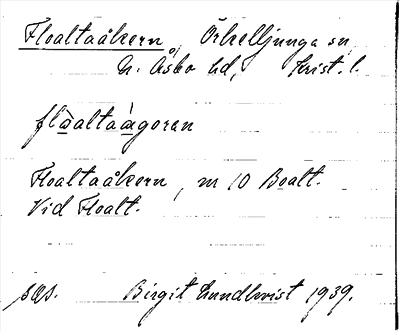 Floaltaåkern, Örkelljunga sn,
N. Åsbo hd, Krist. l.
flòaltaàgoran
Floaltaåkern, m 10 Boalt.
Vid Floalt.
sas. Birgit Lundkvist 1939.